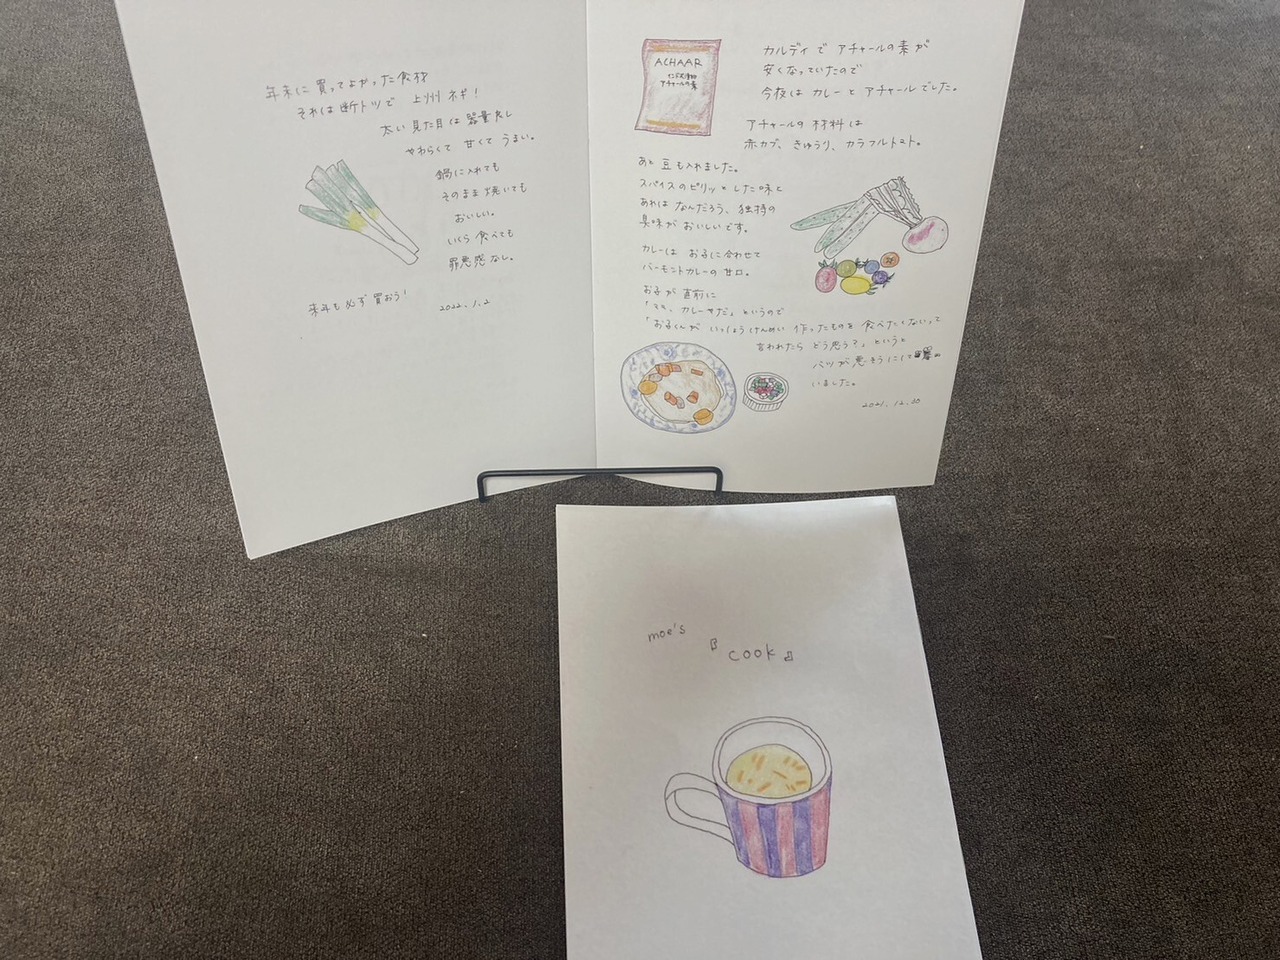 年末に買ってよかった食材
それは断トツで 上州ネギ!
太い見た目は器量良し
やわらくて 甘くて うまい。
鍋に入れても
そのまま焼いても
おいしい。
いくら食べても
罪悪感なし。
来年も必ず買おう!
2022.1.2
カルディで アチャールの素が
安くなっていたので
今夜は カレーと アチャールでした。
ACHAAR
アチャールの素
アチャールの 材料は
赤カブ、きゅうり、カラフルトマト。
あと 豆も入れました。
スパイスのピリッとした味と
あれは なんだろう、独特の
臭味が おいしいです。
カレーは お子に合わせて
バーモントカレーの 甘口。
お子が 直前に
「ママ、カレーやだ」というので
「お子くんが いっしょうけんめい 作ったものを 食べたくないって
言われたら どう思う?」というと
バツが 悪そうにして
いました。
2021.12.30
moe's
『cook』